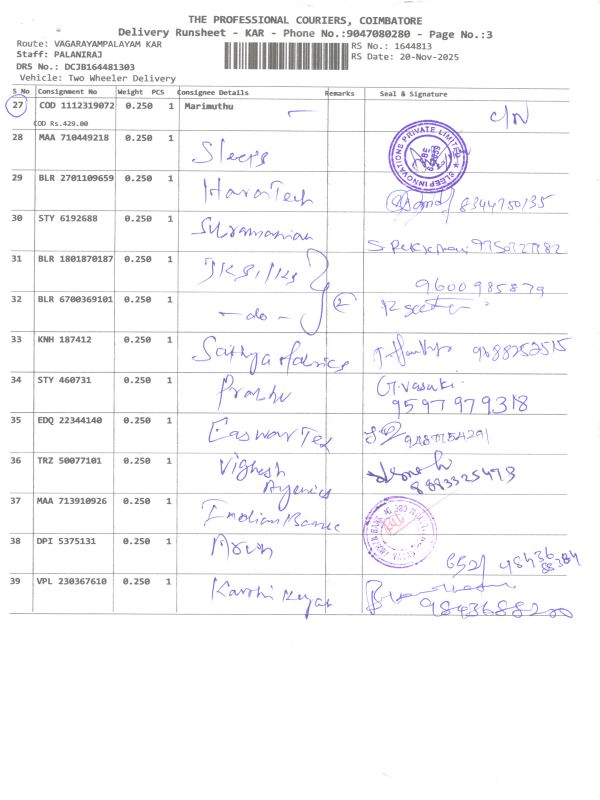 THE PROFESSIONAL COURIERS, COIMBATORE
Delivery Runsheet - KAR - Phone No.:9047080280 - Page No.:3
Route: VAGARAYAMPALAYAM KAR
Staff: PALANIRAJ
DRS No.: DCJB164481303
Vehicle: Two Wheeler Delivery
RS No.: 1644813
RS Date: 20-Nov-2025
S No Consignment No Weight PCS Consignee Details Remarks Seal & Signature
27 COD 1112319072 0.250 1 Marimuthu C/N
COD Rs.429.00
28 MAA 710449218 0.250 1 SLEEP INNOVATIONS PRIVATE LIMITED
29 BLR 2701109659 0.250 1 HaraTech 8344750135
30 STY 6192688 0.250 1
31 BLR 1801870187 0.250 1 9600985879
32 BLR 6700369101 0.250 1 - do - 2
33 KNH 187412 0.250 1 Sathya Fabrics 9688252515
34 STY 460731 0.250 1 Prabhu G.Vasuki
9597979318
35 EDQ 22344140 0.250 1 Easwar Tex
36 TRZ 50077101 0.250 1 Vighesh
Agencies 8883325473
37 MAA 713910926 0.250 1 Indian Bank
38 DPI 5375131 0.250 1 Arun
39 VPL 230367610 0.250 1 Karthikeyan
9843688200